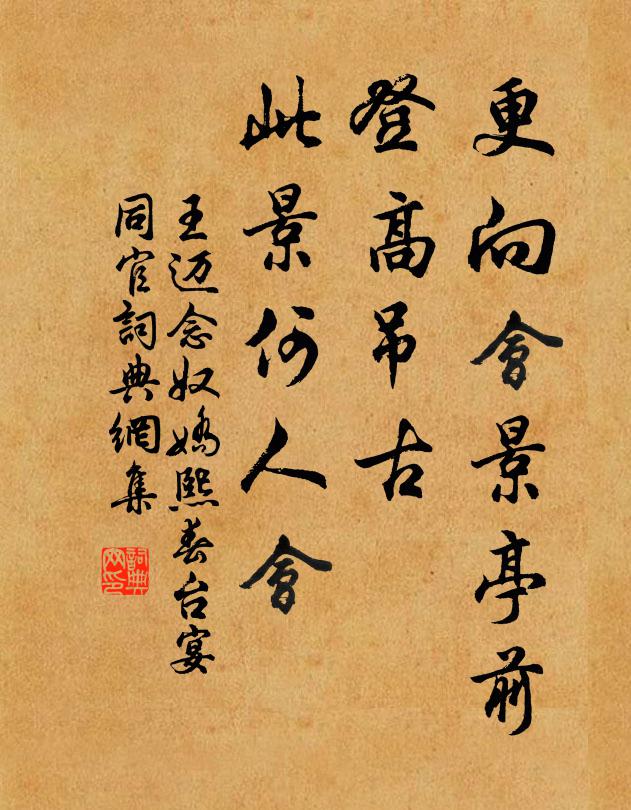 更向會景亭前
登高吊古
此景何人會
王迈念奴嬌熙春台宴
同官詞典網集
詞典
网印